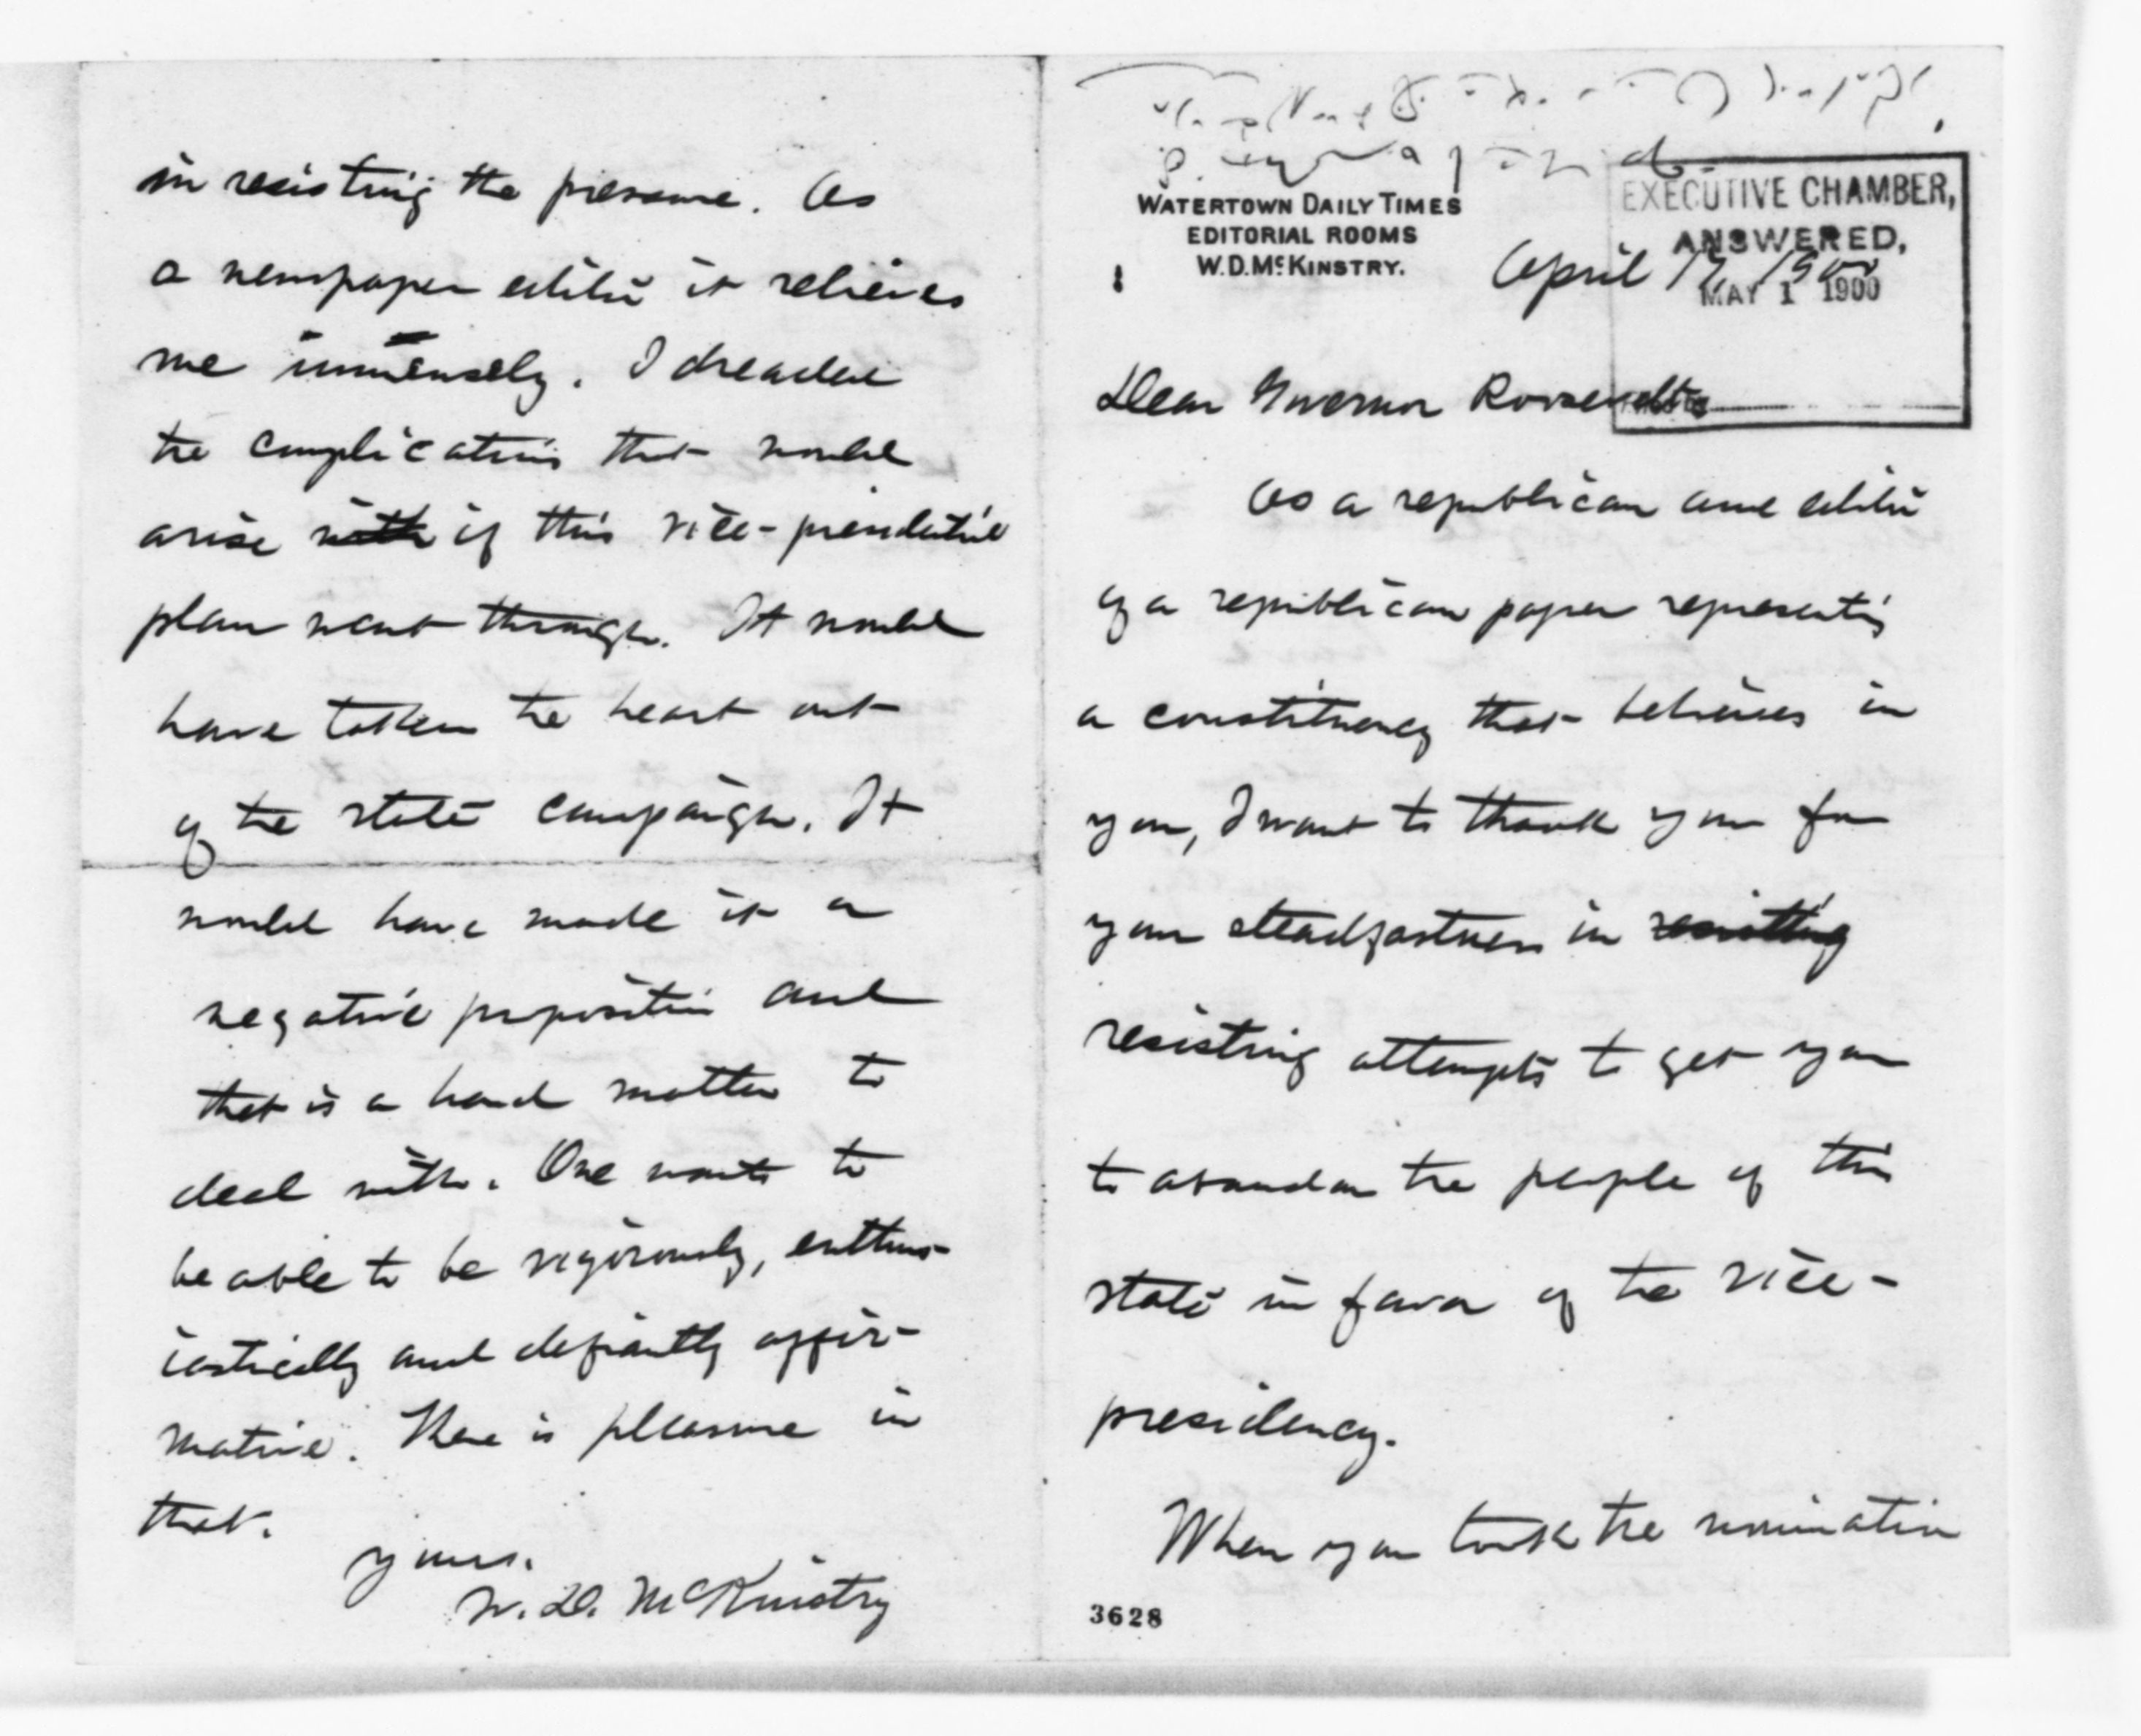 WATERTOWN DAILY TIMES
EDITORIAL ROOMS
W. D. McKINSTRY.
EXECUTIVE CHAMBER,
ANSWERED,
MAY 1 1900
April 17, 1900
Dear Governor Roosevelt:
As a republican and editor
of a republican paper representing
a constituency that believes in
you, I want to thank you for
your steadfastness in resisting
resisting attempts to get you
to abandon the people of this
state in favor of the vice-
presidency.
When you took the nomination
3628
in resisting the pressure. As
a newspaper editor it relieves
me immensely. I dreaded
the complications that would
arise with if this vice-presidential
plan went through. It would
have taken the heart out
of the state campaign. It
would have made it a
negative proposition and
that is a hard matter to
deal with. One wants to
be able to be vigorously, enthus-
iastically and defiantly affir-
mative. There is pleasure in
that.
Yours.
W. D. McKinstry